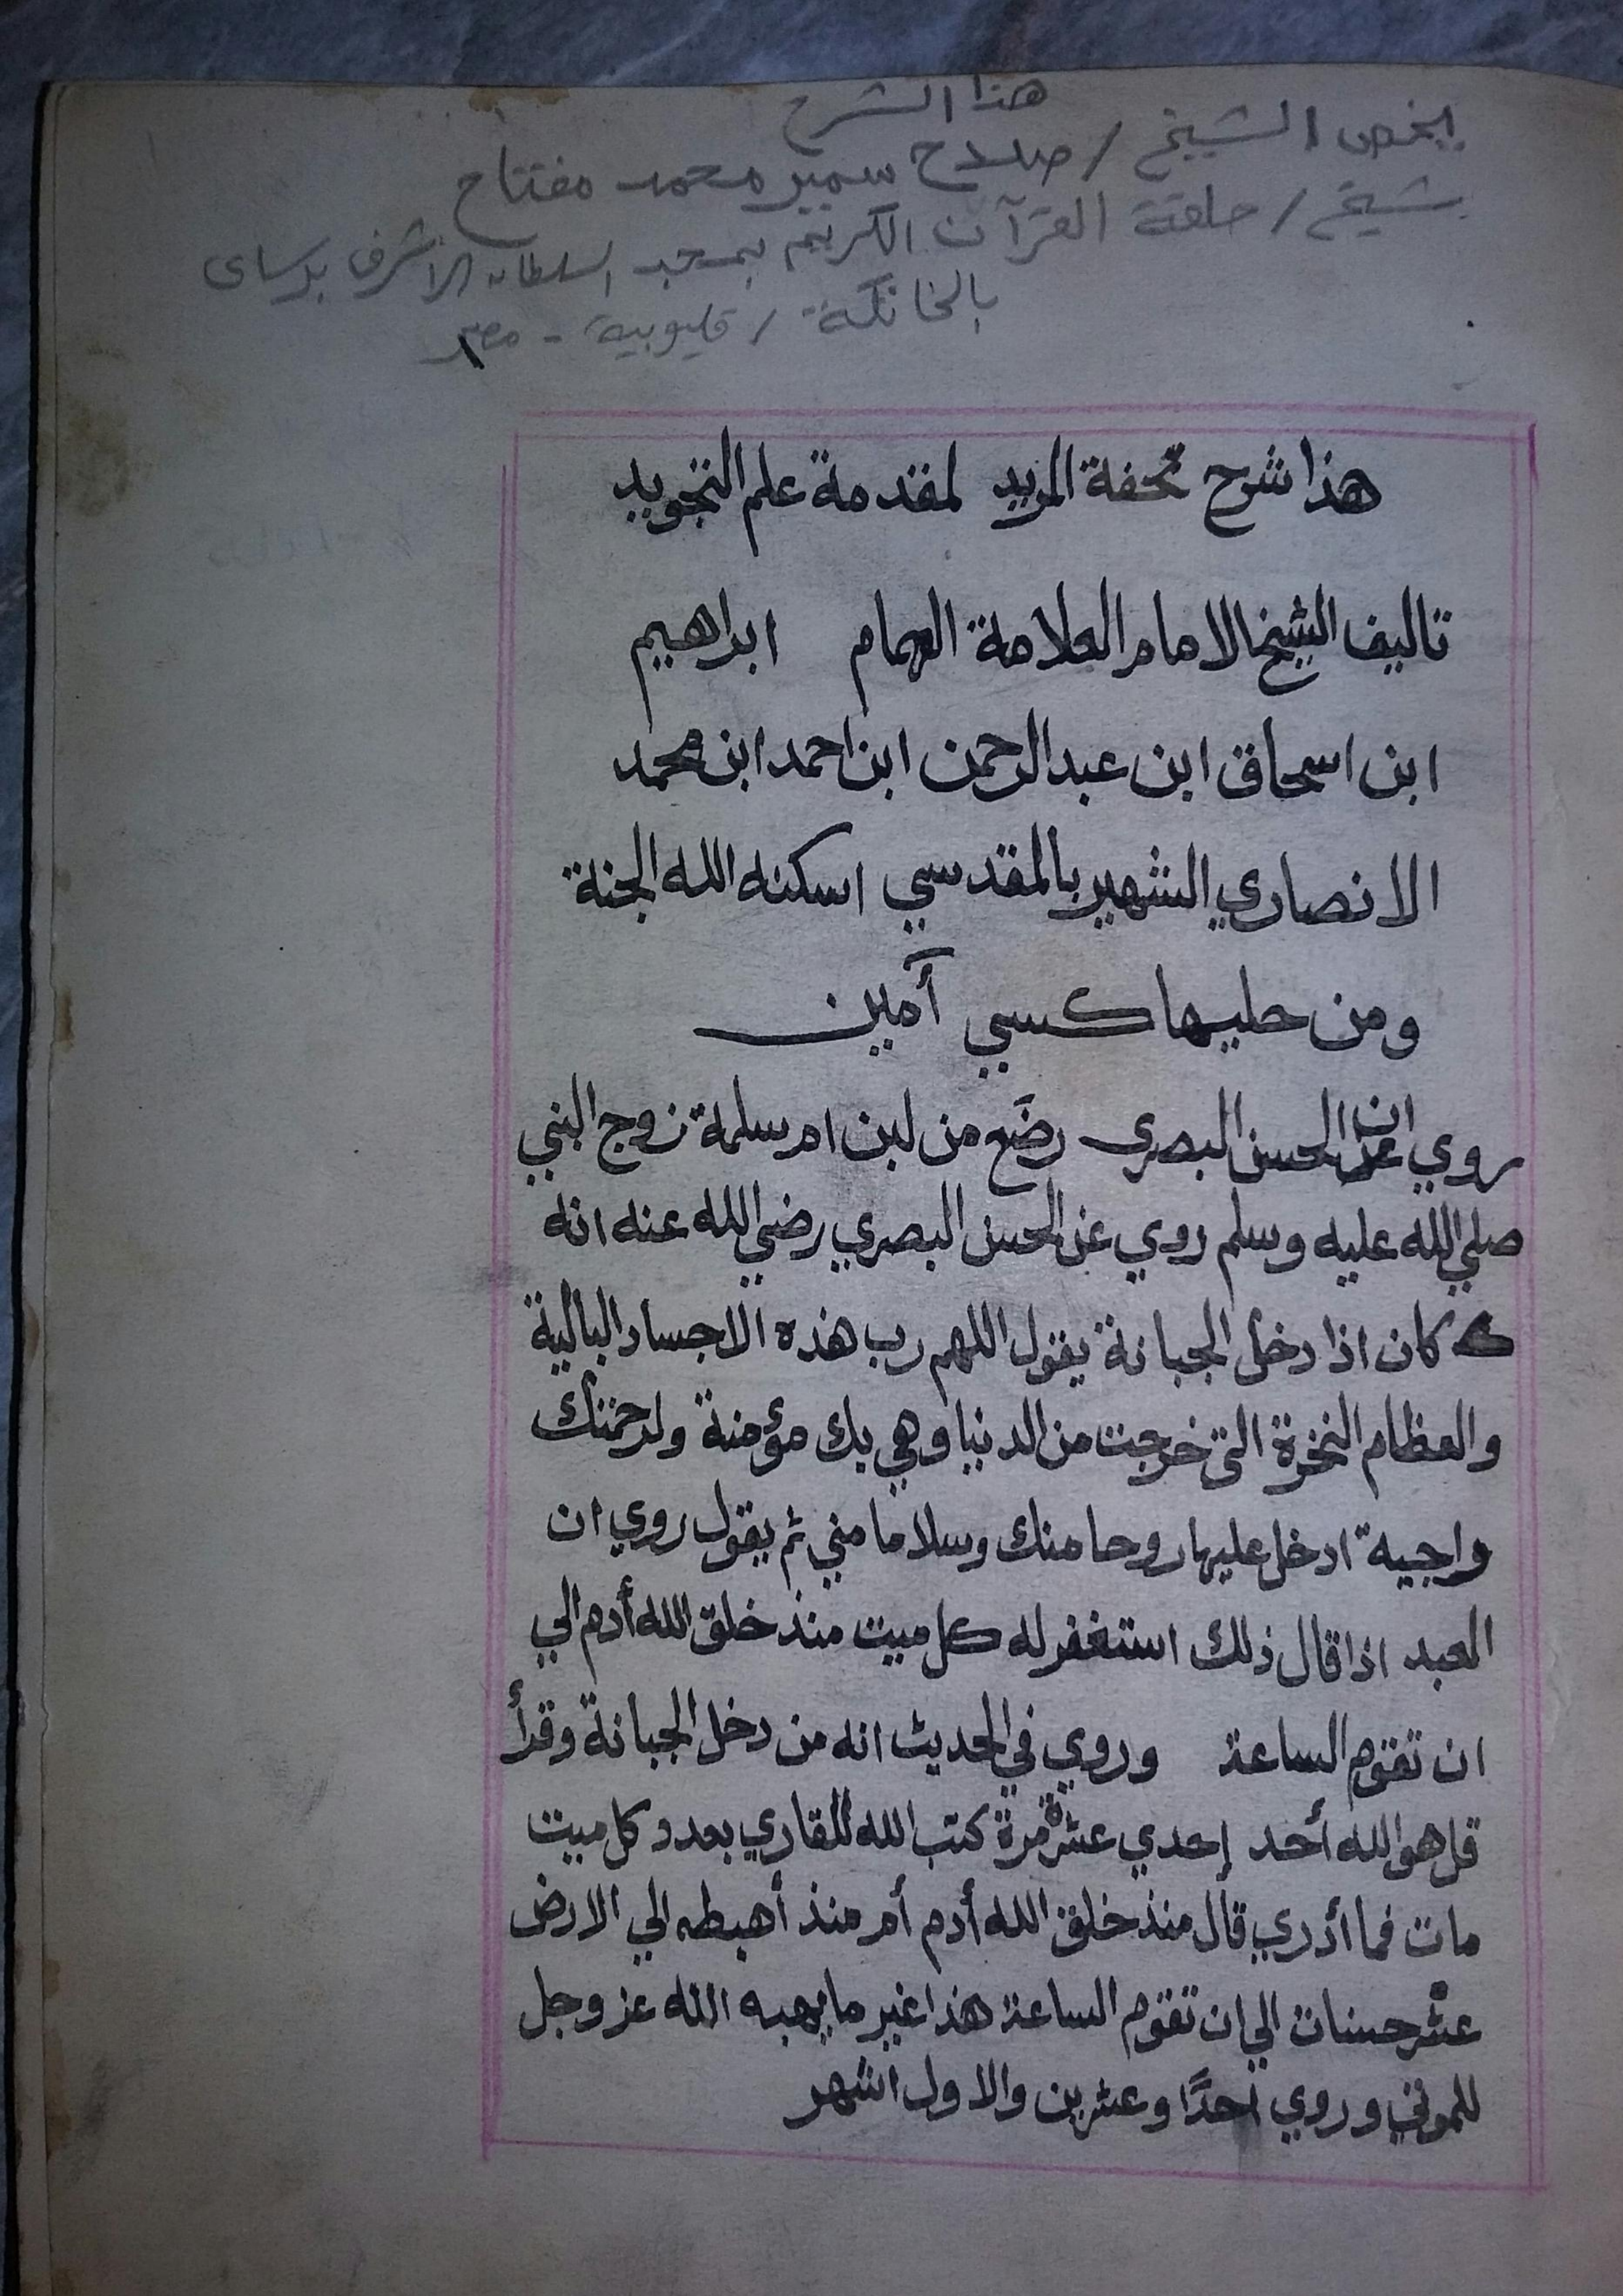 هذا الشرح
يخص الشيخ / صلاح سمير محمد مفتاح
شيخ / حلقة القرآن الكريم بمسجد السلطان الاشرف برسباى
بالخانكة / قليوبية - مصر
هذا شرح تحفة المريد لمقدمة علم التجويد
تاليف الشيخ الامام العلامة الهمام ابراهيم
ابن اسحاق ابن عبد الرحمن ابن احمد ابن محمد
الانصاري الشهير بالمقدسي اسكنه الله الجنة
ومن حليها كسي آمين
روي ان الحسن البصري رضَع من لبن ام سلمة زوج النبي
صلي الله عليه وسلم روي عن الحسن البصري رضي الله عنه انه
كان اذا دخل الجبانة يقول اللهم رب هذه الاجساد البالية
والعظام النخرة التي خرجت من الدنيا وهي بك مؤمنة ولرحمتك
واجية ادخل عليها روحا منك وسلاما مني ثم يقول روي ان
العبد اذا قال ذلك استغفر له كل ميت منذ خلق الله أدم الي
ان تقوم الساعة وروي في الحديث انه من دخل الجبانة وقرأ
قل هو الله أحد إحدي عشرة مرة كتب الله للقاري بعدد كل ميت
مات فما أدري قال منذ خلق الله أدم أم منذ أهبطه الي الارض
عشر حسنات الي ان تقوم الساعة هذا غير ما يهبه الله عز وجل
للموتي وروي احدًا وعشرين والاول اشهر